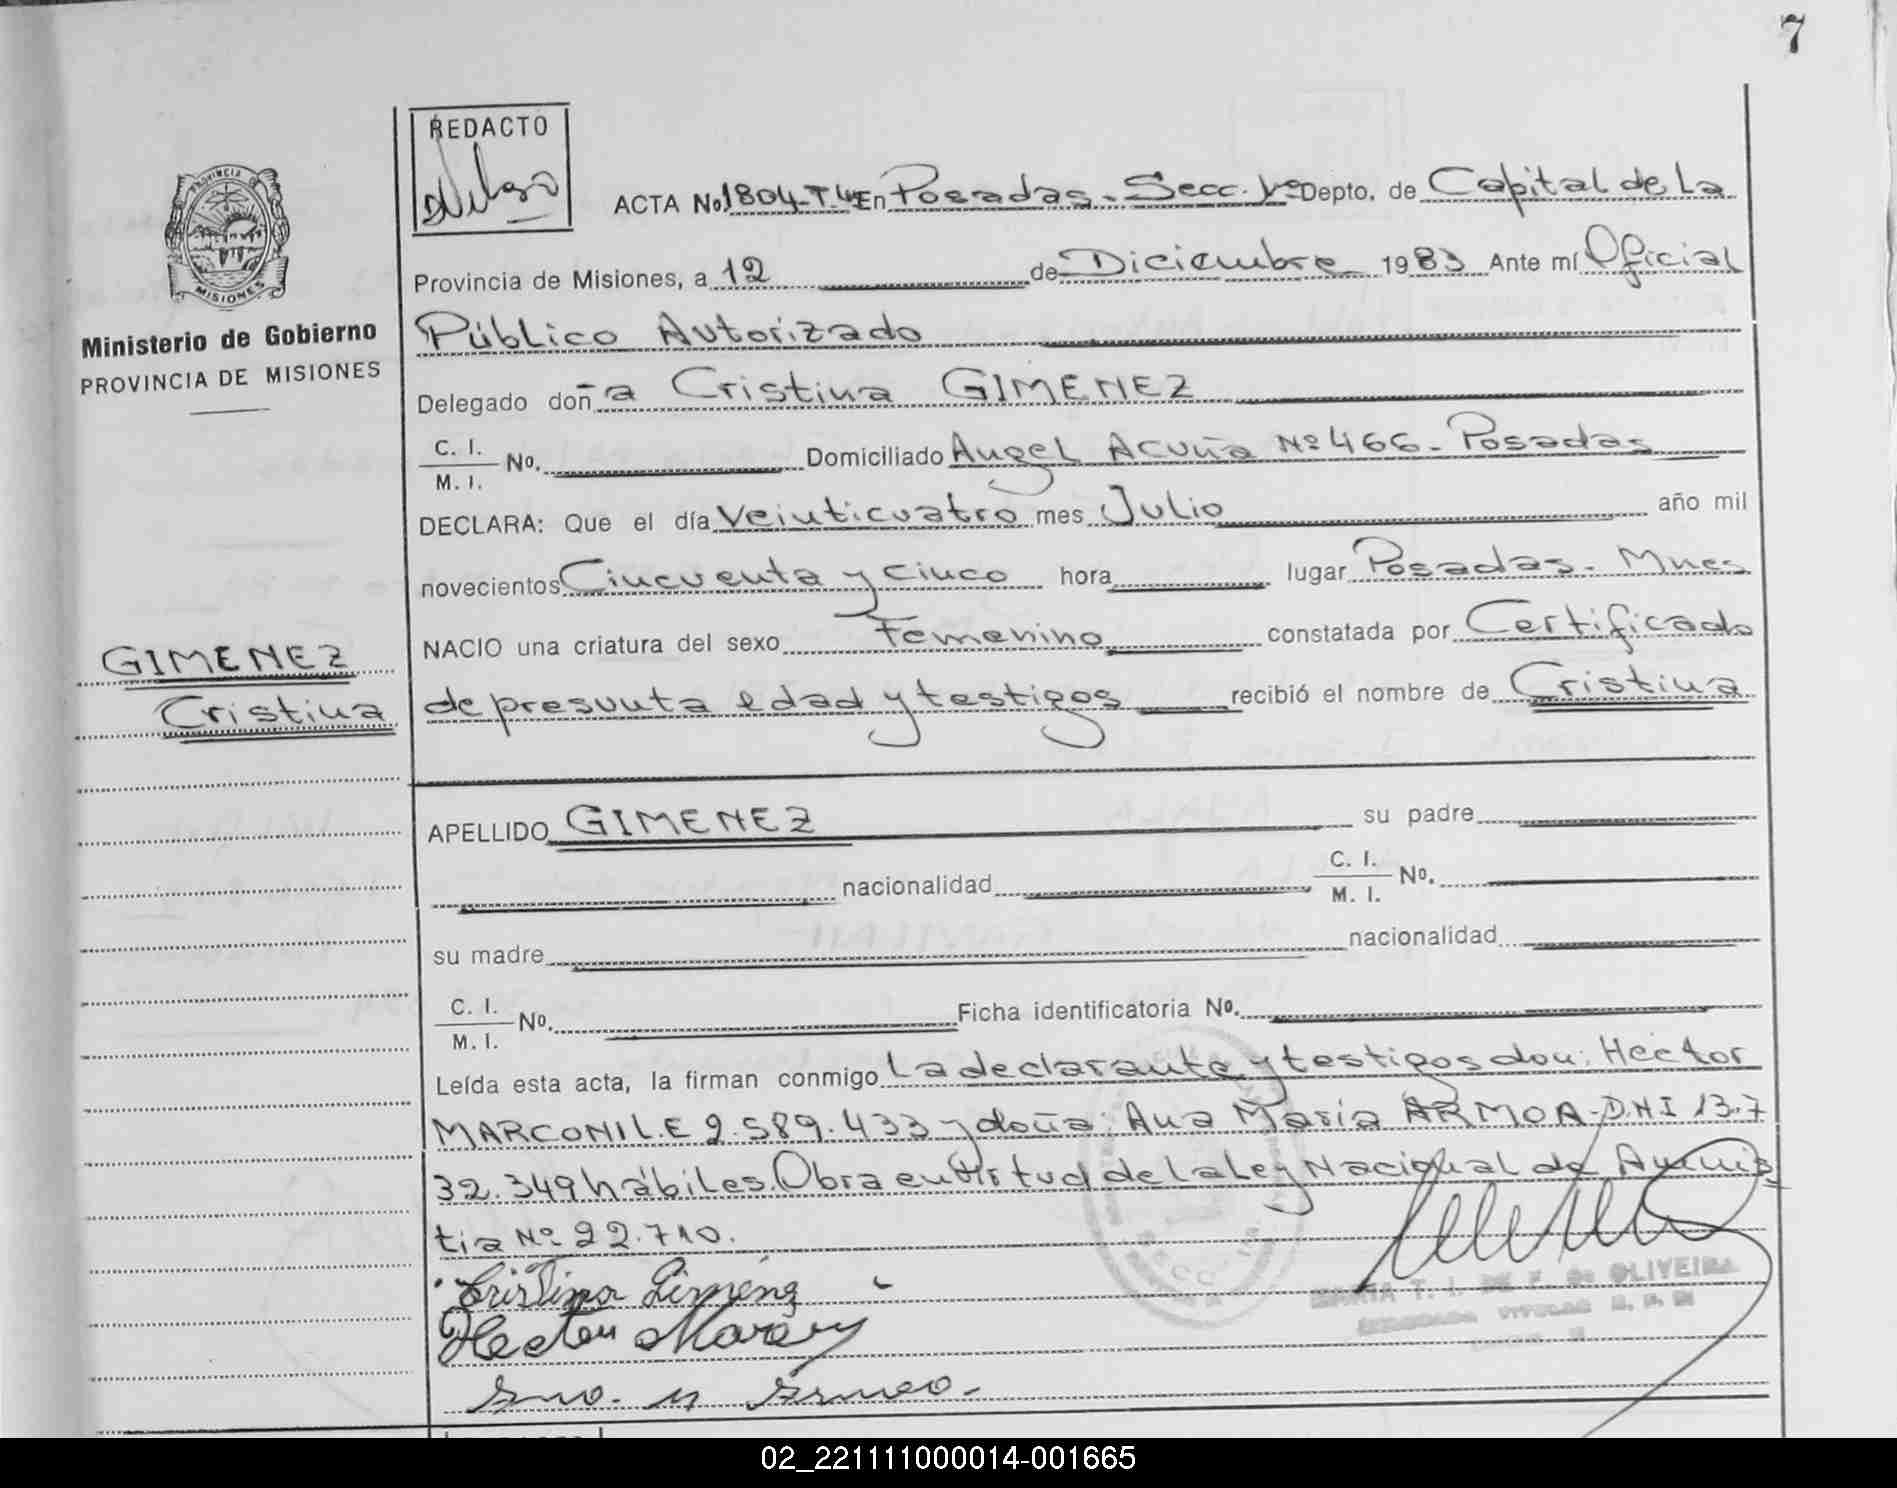 7
REDACTO
PROVINCIA DE
MISIONES
Ministerio de Gobierno
PROVINCIA DE MISIONES
ACTA No. 1804-T.4º En Posadas - Secc. 1º Depto. de Capital de La
Provincia de Misiones, a 12 de Diciembre 1983 Ante mí Oficial
Público Autorizado
Delegado doña Cristina GIMENEZ
C. I.
M. I. No. Domiciliado Angel Acuña Nº 466 - Posadas
DECLARA: Que el día Veinticuatro mes Julio año mil
novecientos Cincuenta y cinco hora lugar Posadas - Mnes
NACIO una criatura del sexo Femenino constatada por Certificado
de presunta edad y testigos recibió el nombre de Cristina
GIMENEZ
Cristina
APELLIDO GIMENEZ su padre
nacionalidad C. I.
M. I. No.
su madre nacionalidad
C. I.
M. I. No. Ficha identificatoria No.
Leída esta acta, la firman conmigo La declarante y testigos don: Hector
MARCONI L.E 2.589.433 y doña: Ana María ARMOA - D.N.I 13.7
32.349 hábiles. Obra en virtud de la Ley Nacional de Amnis
tia Nº 22.710.
Cristina Gimenez
Hector
MARIA T. I. DE F. DE OLIVEIRA
02_221111000014-001665